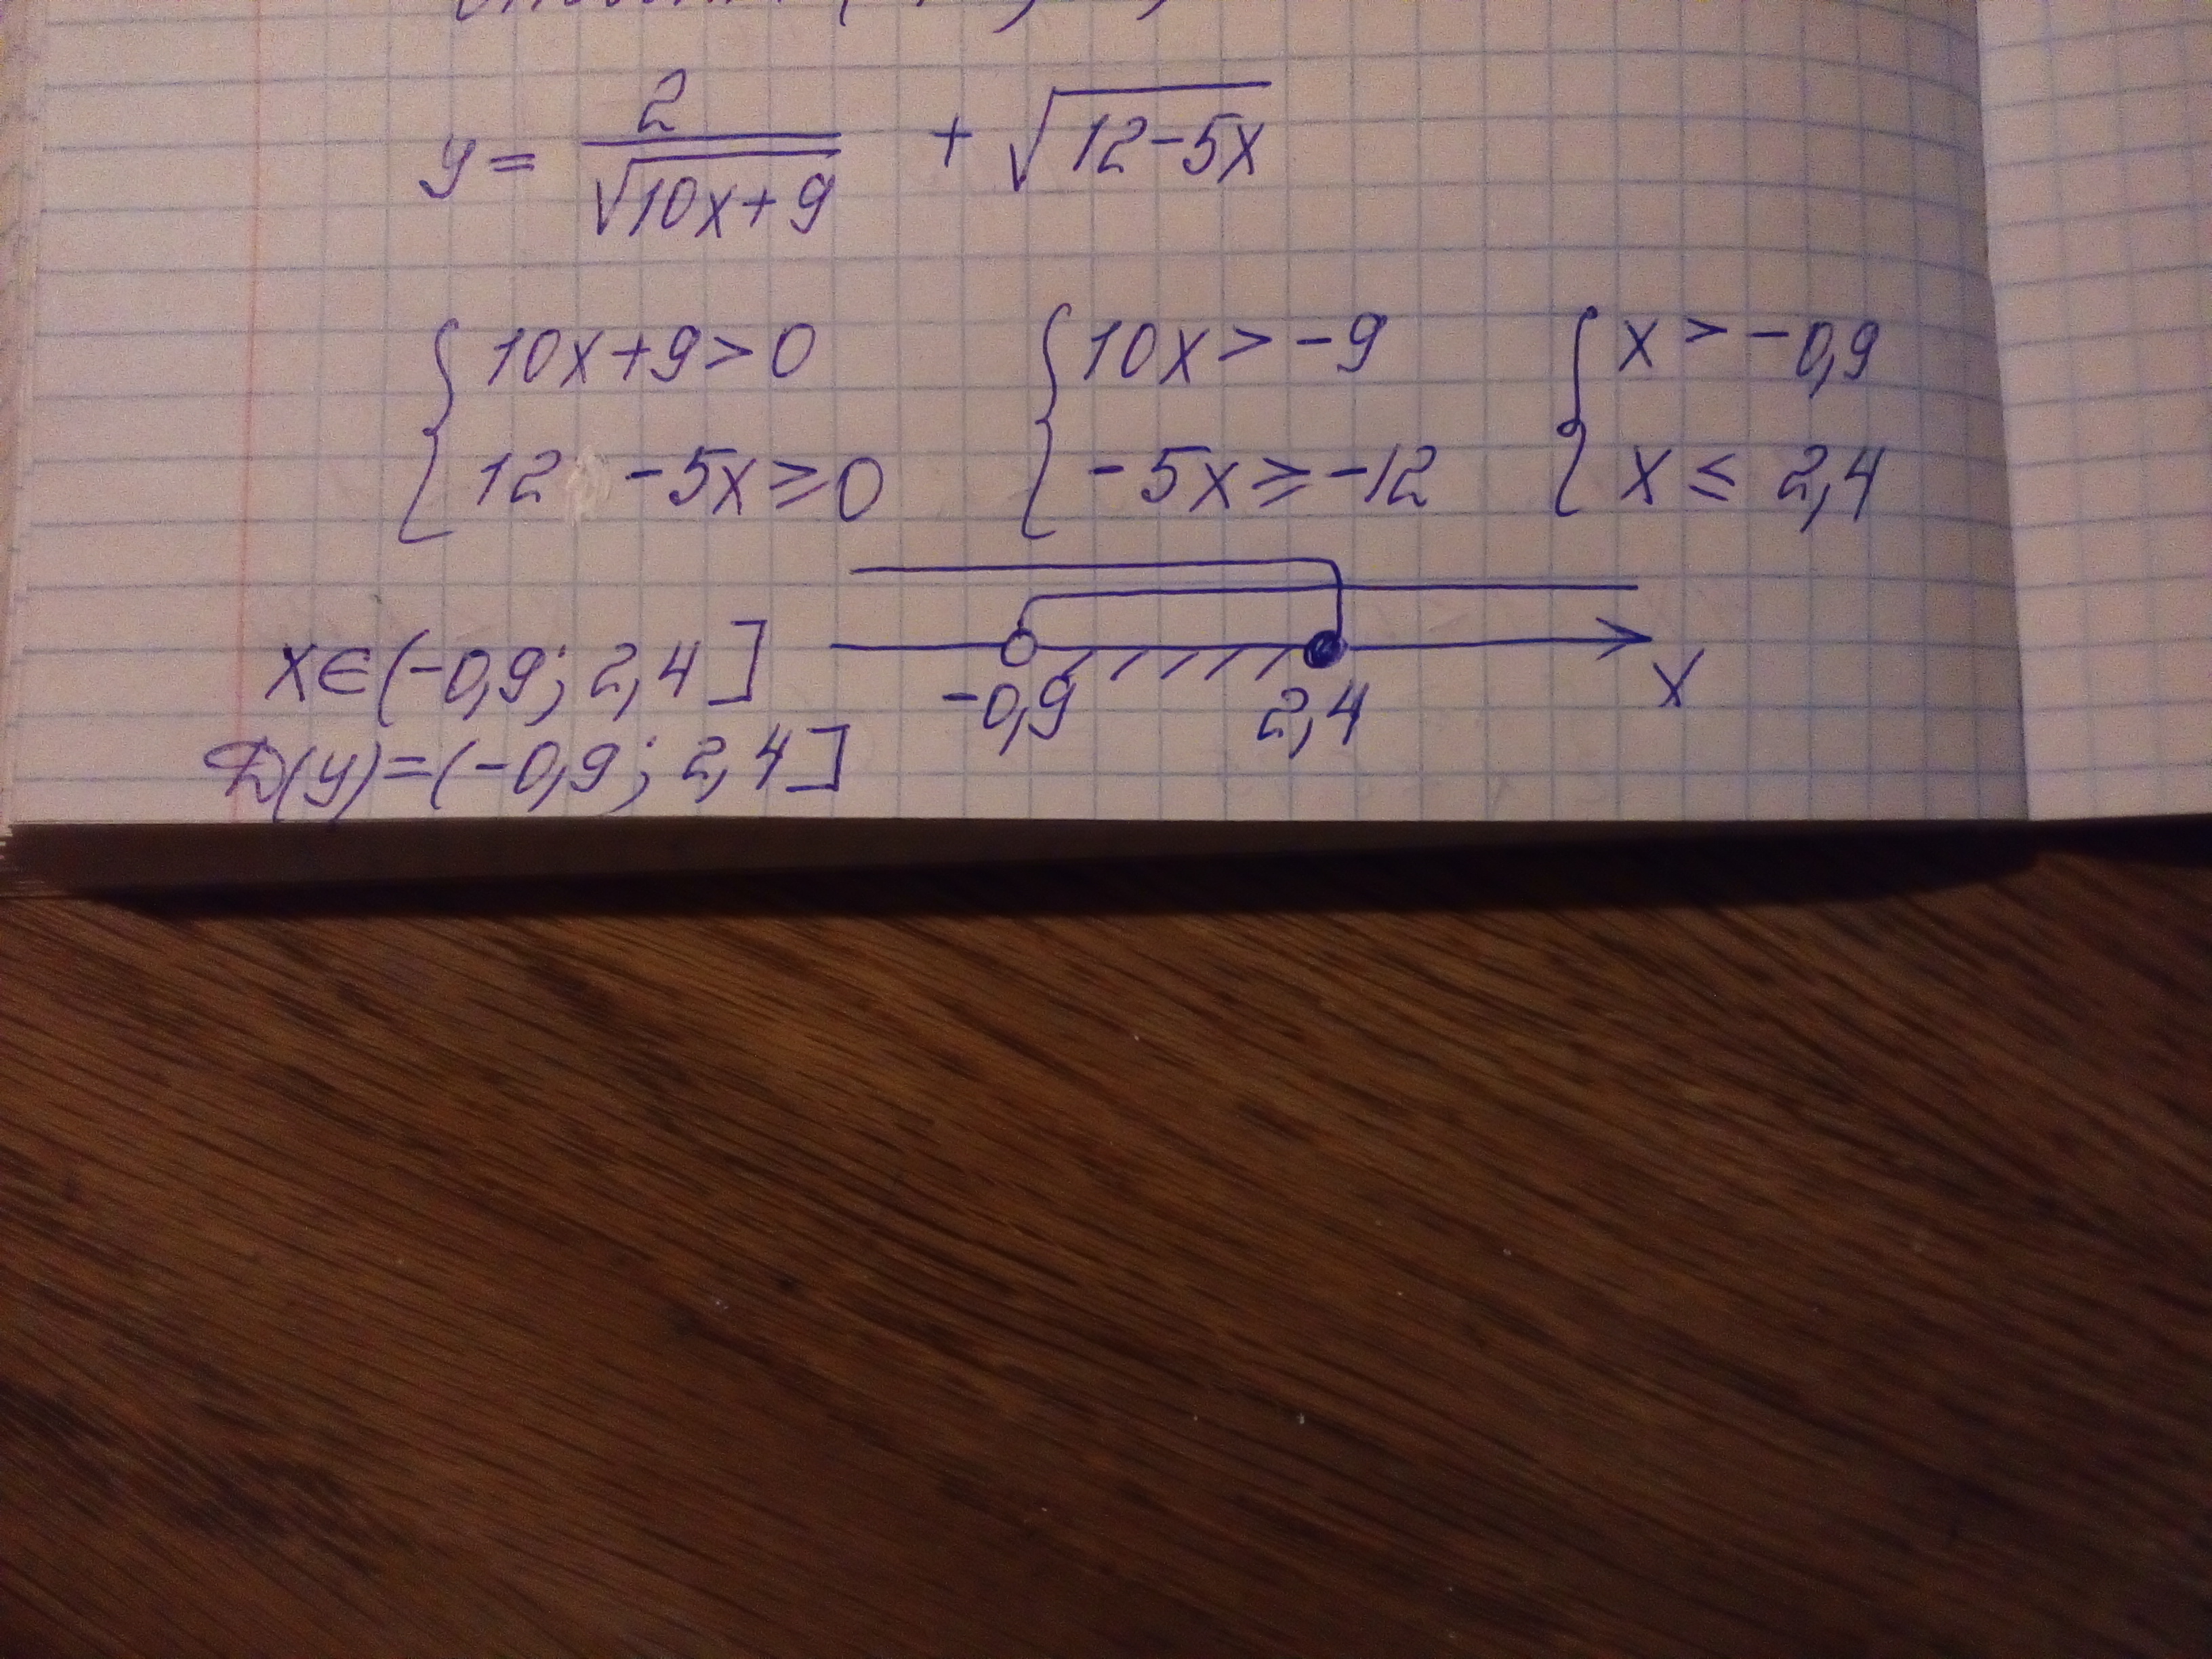 y = 2/√(10x+9) + √(12-5x)
{ 10x+9>0 { 10x > -9 { x > -0,9
12 -5x ⩾ 0 -5x ⩾ -12 x ≤ 2,4
x∈(-0,9; 2,4]
-0,9 2,4 x
D(y)=(-0,9; 2,4]